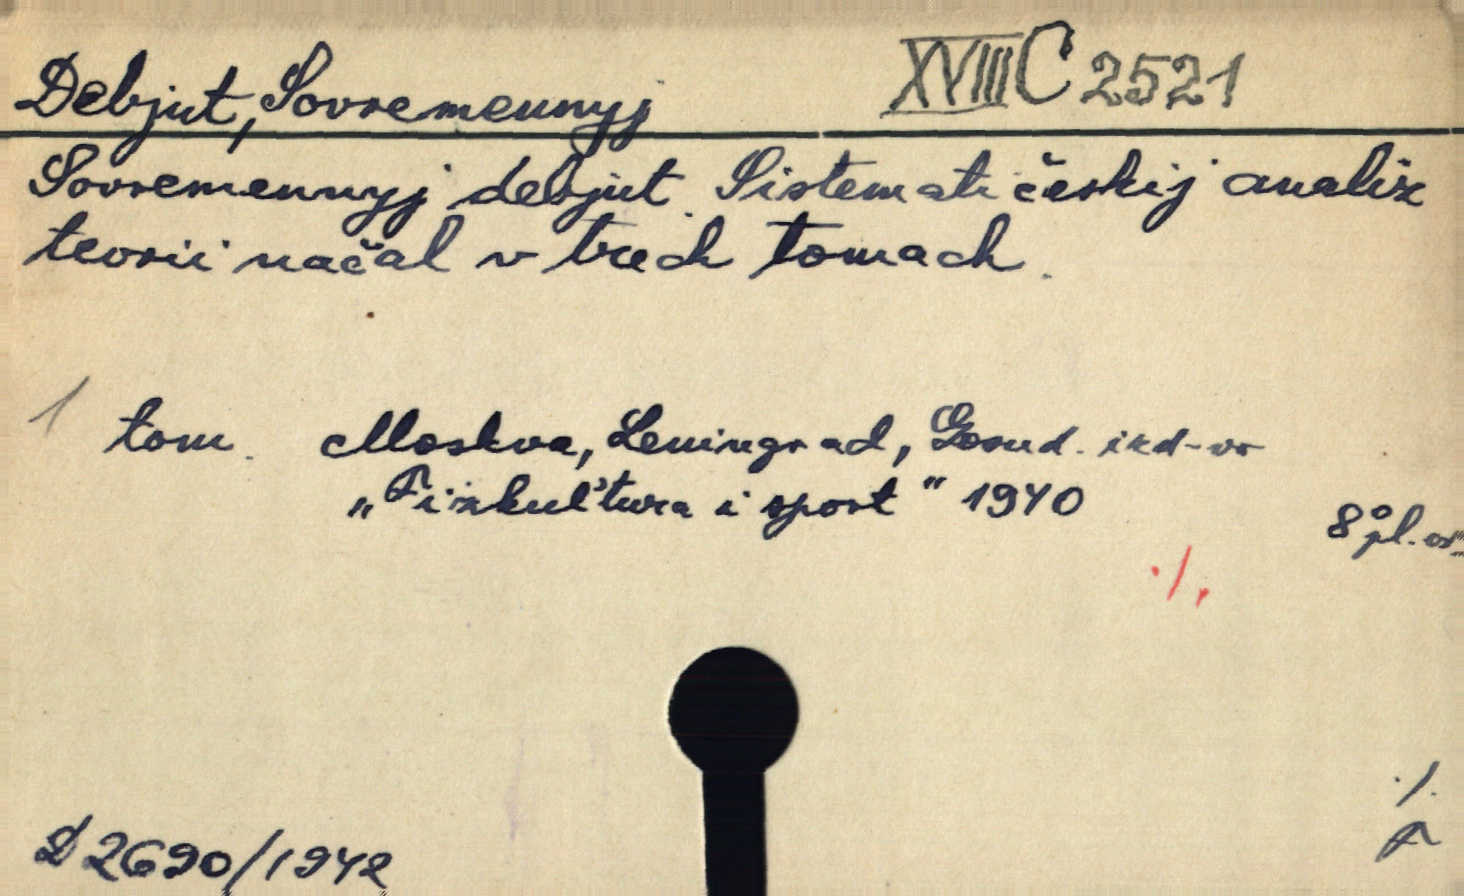 Debjut, Sovremennyj XVIII C 2521
Sovremennyj debjut. Sistematičeskij analiz
teorii načal v trech tomach.
1 tom. Moskva, Leningrad, Gosud. izd-vo
„Fizkul'tura i sport" 1940
8° pl.
./.
./.
D 2690/1942